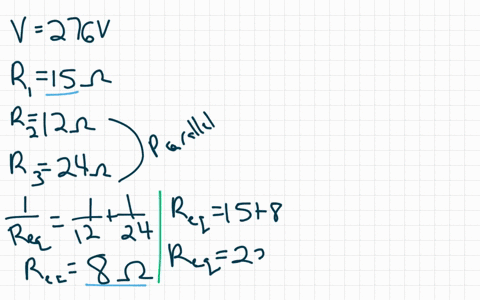 V = 276V
R1 = 15Ω
R2 = 12Ω
R3 = 24Ω
Parallel
1/Req = 1/12 + 1/24
Req = 8Ω
Req = 15+8
Req = 2